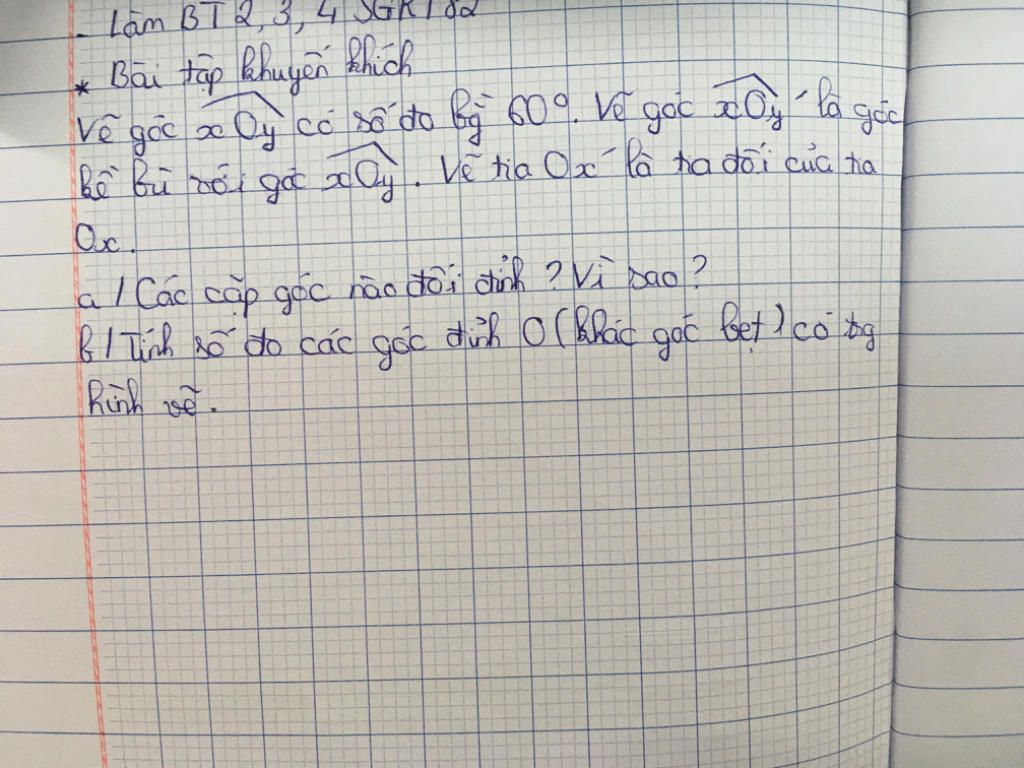 - Làm BT 2, 3, 4 SGK / 82
* Bài tập khuyến khích
Vẽ góc xOy có số đo bg 60°. Vẽ góc xOy' là góc
kề bù với góc xOy. Vẽ tia Ox' là tia đối của tia
Ox.
a / Các cặp góc nào đối đỉnh ? Vì sao ?
b / Tính số đo các góc đỉnh O (khác góc bẹt) có tg
hình vẽ.